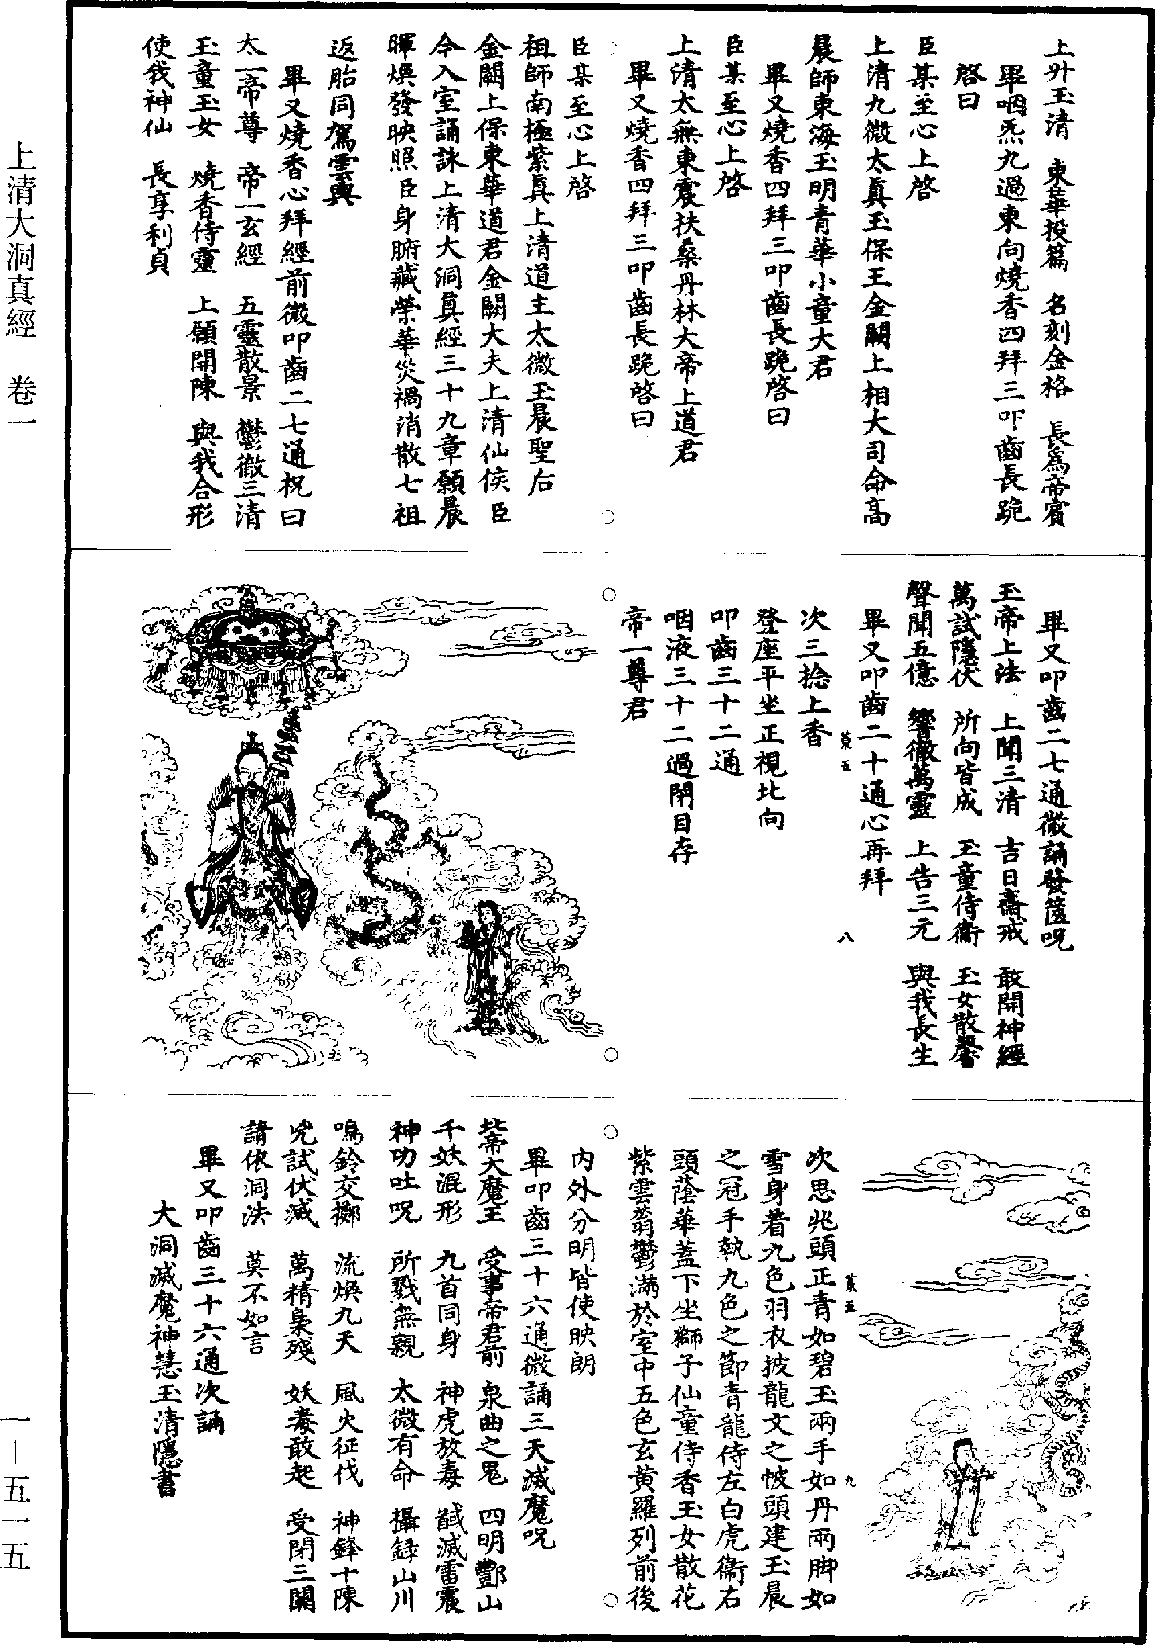 上清大洞真經　卷一
一—五一五
上升玉清　東華投篇　名刻金格　長為帝賓
畢咽炁九過東向燒香四拜三叩齒長跪
啓曰
臣某至心上啓
上清九微太真玉保王金闕上相大司命高
晨師東海玉明青華小童大君
畢又燒香四拜三叩齒長跪啓曰
臣某至心上啓
上清太無東霞扶桑丹林大帝上道君
畢又燒香四拜三叩齒長跪啓曰
臣某至心上啓
祖師南極紫真上清道主太微玉晨聖后
金闕上保東華道君金闕大夫上清仙侯臣
今入室誦詠上清大洞真經三十九章願晨
暉煥發映照臣身腑藏榮華災禍消散七祖
返胎同駕雲輿
畢又燒香心拜經前微叩齒二七通祝曰
太一帝尊　帝一玄經　五靈散景　鬱徹三清
玉童玉女　燒香侍靈　上願開陳　與我合形
使我神仙　長享利貞
畢又叩齒二七通微誦發篋呪
玉帝上法　上聞三清　吉日齋戒　敢開神經
萬試隱伏　所向皆成　玉童侍衛　玉女散馨
聲聞五億　響徹萬靈　上告三元　與我長生
畢又叩齒二十通心再拜
八
次三捻上香
登座平坐正視北向
叩齒三十二通
咽液三十二過閉目存
帝一尊君
次思兆頭正青如碧玉兩手如丹兩脚如
九
雪身着九色羽衣披龍文之帔頭建玉晨
之冠手執九色之節青龍侍左白虎衛右
頭蔭華蓋下坐獅子仙童侍香玉女散花
紫雲蓊鬱滿於室中五色玄黃羅列前後
內外分明皆使映朗
畢叩齒三十六通微誦三天滅魔呪
北帝大魔王　受事帝君前　泉曲之鬼　四明酆山
千妖混形　九首同身　神虎放毒　馘滅雷震
神功吐呪　所戮無親　太微有命　攝錄山川
鳴鈴交擲　流煥九天　風火征伐　神鋒十陳
兇試伏滅　萬精梟殘　妖毒敢起　受閉三關
請依洞法　莫不如言
畢又叩齒三十六通次誦
大洞滅魔神慧玉清隱書